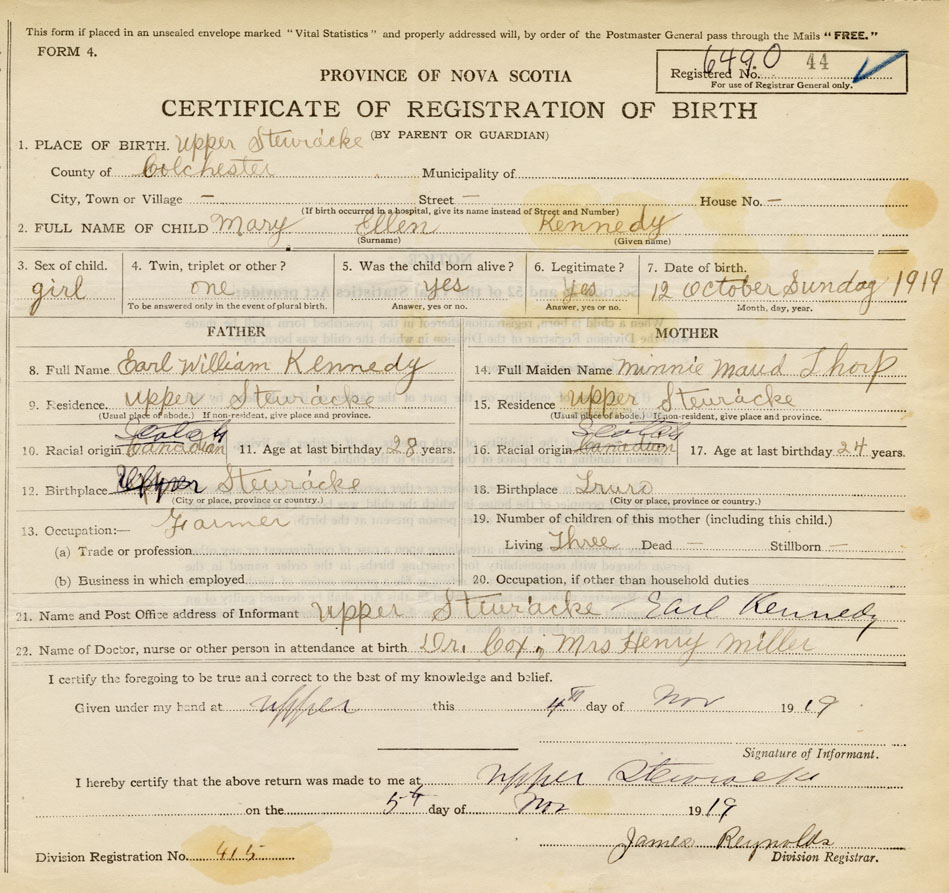 This form if placed in an unsealed envelope marked "Vital Statistics" and properly addressed will, by order of the Postmaster General pass through the Mails "FREE."
FORM 4.
Registered No. 6490 44
For use of Registrar General only.
PROVINCE OF NOVA SCOTIA
CERTIFICATE OF REGISTRATION OF BIRTH
(BY PARENT OR GUARDIAN)
1. PLACE OF BIRTH. Upper Stewiacke
County of Colchester Municipality of
City, Town or Village — Street — House No. —
(If birth occurred in a hospital, give its name instead of Street and Number)
2. FULL NAME OF CHILD Mary Ellen Kennedy
(Surname) (Given name)
3. Sex of child. 4. Twin, triplet or other? 5. Was the child born alive? 6. Legitimate? 7. Date of birth.
girl one yes yes 12 October Sunday 1919
To be answered only in the event of plural birth. Answer, yes or no. Answer, yes or no. Month, day, year.
FATHER MOTHER
8. Full Name Earl William Kennedy 14. Full Maiden Name Minnie Maud Thorp
9. Residence. Upper Stewiacke 15. Residence Upper Stewiacke
(Usual place of abode.) If non-resident, give place and province. (Usual place of abode.) If non-resident, give place and province.
Scotch Scotch
10. Racial origin Canadian 11. Age at last birthday 28 years. 16. Racial origin Canadian 17. Age at last birthday 24 years.
12. Birthplace Upper Stewiacke 18. Birthplace Truro
(City or place, province or country.) (City or place, province or country.)
13. Occupation:— Farmer 19. Number of children of this mother (including this child.)
(a) Trade or profession. Living Three Dead — Stillborn —
(b) Business in which employed 20. Occupation, if other than household duties
21. Name and Post Office address of Informant Upper Stewiacke - Earl Kennedy
22. Name of Doctor, nurse or other person in attendance at birth Dr. Cox, Mrs Henry Miller
I certify the foregoing to be true and correct to the best of my knowledge and belief.
Given under my hand at Upper this 4th day of Nov 1919
Signature of Informant.
I hereby certify that the above return was made to me at Upper Stewiacke
on the 5th day of Nov 1919
James Reynolds
Division Registration No. 415 Division Registrar.